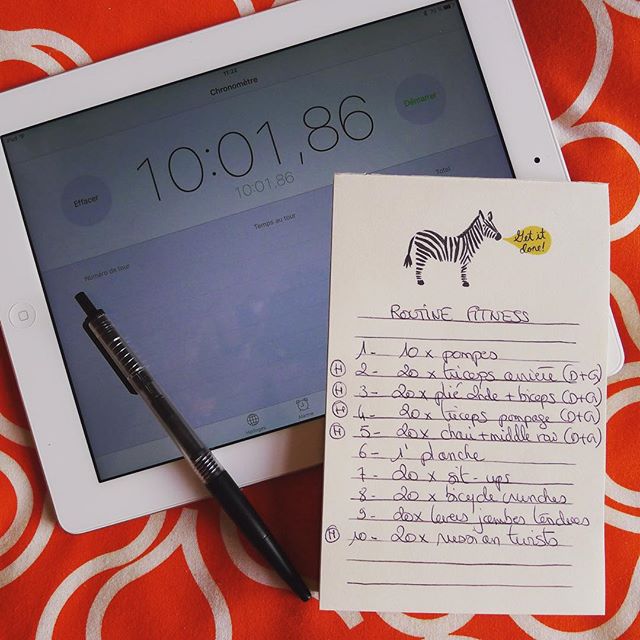 iPad
11:22
76 %
Chronomètre
10:01,86
10:01,86
Effacer
Démarrer
Numéro de tour
Temps au tour
Total
Horloges
Alarme
Get it
done!
ROUTINE FITNESS
1- 10 x pompes
(H) 2- 20 x triceps arrière (D+G)
(H) 3- 20 x plié slide + biceps (D+G)
(H) 4- 20 x triceps pompage (D+G)
(H) 5- 20 x chair + middle row (D+G)
6- 1' planche
7- 20 x sit-ups
8- 20 x bicycle crunches
9- 20x levers jambes tendues
(H) 10- 20 x russian twists